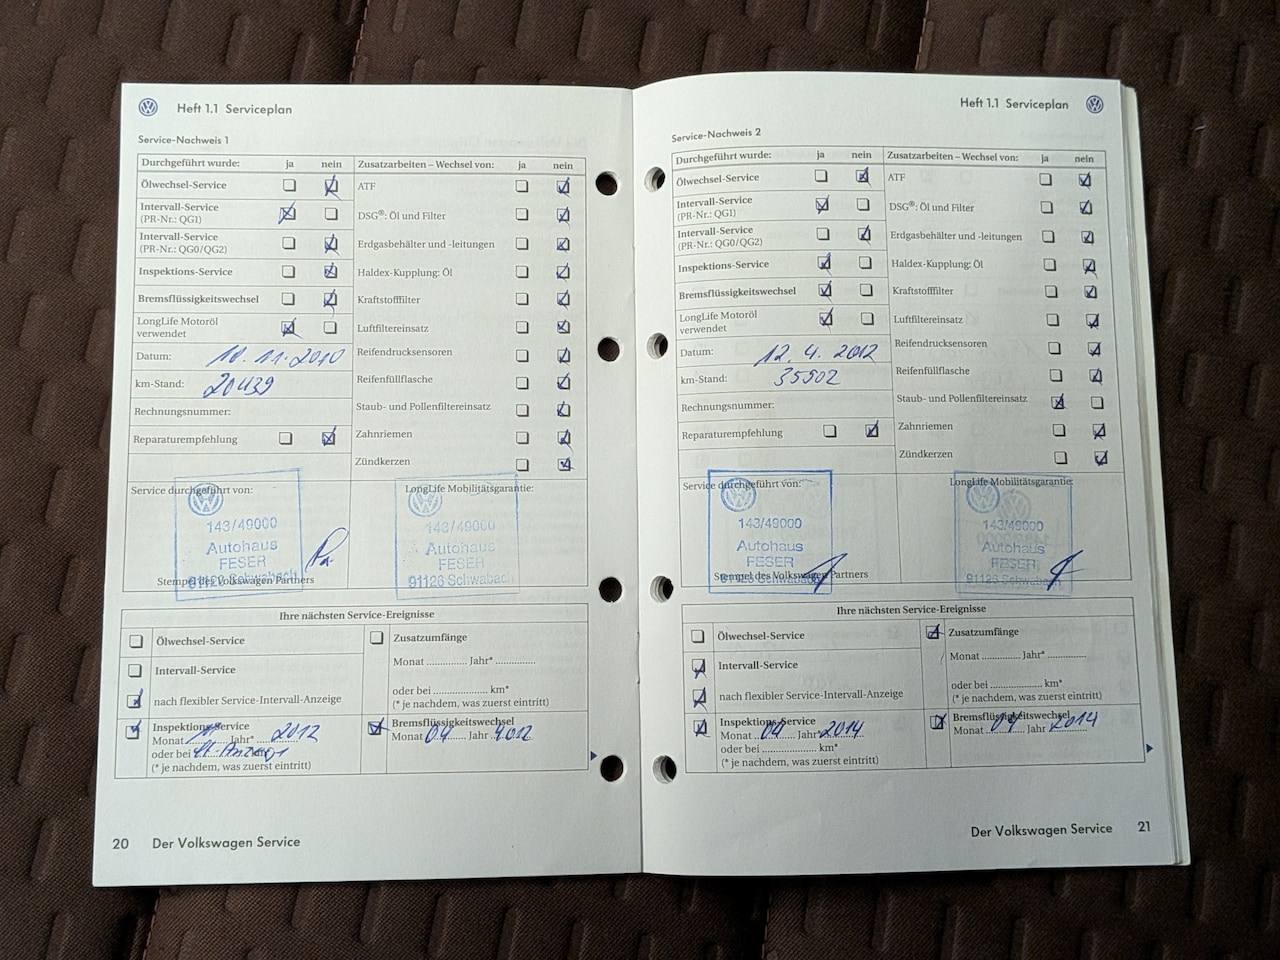 Heft 1.1 Serviceplan
Service-Nachweis 1
Durchgeführt wurde: ja nein
Ölwechsel-Service
Intervall-Service
(PR-Nr.: QG1)
Intervall-Service
(PR-Nr.: QG0/QG2)
Inspektions-Service
Bremsflüssigkeitswechsel
LongLife Motoröl
verwendet
Datum: 10.11.2010
km-Stand: 20439
Rechnungsnummer:
Reparaturempfehlung
Zusatzarbeiten – Wechsel von: ja nein
ATF
DSG®: Öl und Filter
Erdgasbehälter und -leitungen
Haldex-Kupplung: Öl
Kraftstofffilter
Luftfiltereinsatz
Reifendrucksensoren
Reifenfüllflasche
Staub- und Pollenfiltereinsatz
Zahnriemen
Zündkerzen
Service durchgeführt von:
143/49000
Autohaus
FESER
91126 Schwabach
Stempel des Volkswagen Partners
LongLife Mobilitätsgarantie:
143/49000
Autohaus
FESER
91126 Schwabach
Ihre nächsten Service-Ereignisse
Ölwechsel-Service
Intervall-Service
nach flexibler Service-Intervall-Anzeige
Inspektions-Service
Monat Jahr* 2012
oder bei lt. Anzeige
(* je nachdem, was zuerst eintritt)
Zusatzumfänge
Monat .............. Jahr* ..............
oder bei ................... km*
(* je nachdem, was zuerst eintritt)
Bremsflüssigkeitswechsel
Monat 04 Jahr 2012
20 Der Volkswagen Service
Heft 1.1 Serviceplan
Service-Nachweis 2
Durchgeführt wurde: ja nein
Ölwechsel-Service
Intervall-Service
(PR-Nr.: QG1)
Intervall-Service
(PR-Nr.: QG0/QG2)
Inspektions-Service
Bremsflüssigkeitswechsel
LongLife Motoröl
verwendet
Datum: 12.4.2012
km-Stand: 35502
Rechnungsnummer:
Reparaturempfehlung
Zusatzarbeiten – Wechsel von: ja nein
ATF
DSG®: Öl und Filter
Erdgasbehälter und -leitungen
Haldex-Kupplung: Öl
Kraftstofffilter
Luftfiltereinsatz
Reifendrucksensoren
Reifenfüllflasche
Staub- und Pollenfiltereinsatz
Zahnriemen
Zündkerzen
Service durchgeführt von:
143/49000
Autohaus
FESER
91126 Schwabach
Stempel des Volkswagen Partners
LongLife Mobilitätsgarantie:
143/49000
Autohaus
FESER
91126 Schwabach
Ihre nächsten Service-Ereignisse
Ölwechsel-Service
Intervall-Service
nach flexibler Service-Intervall-Anzeige
Inspektions-Service
Monat 04 Jahr* 2014
oder bei ................... km*
(* je nachdem, was zuerst eintritt)
Zusatzumfänge
Monat .............. Jahr* ..............
oder bei ................... km*
(* je nachdem, was zuerst eintritt)
Bremsflüssigkeitswechsel
Monat 04 Jahr 2014
Der Volkswagen Service 21